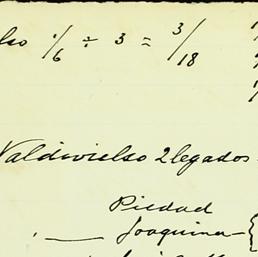 lso 1/6 ÷ 3 = 3/18
Valdivielso 2 legados
Piedad
Joaquina